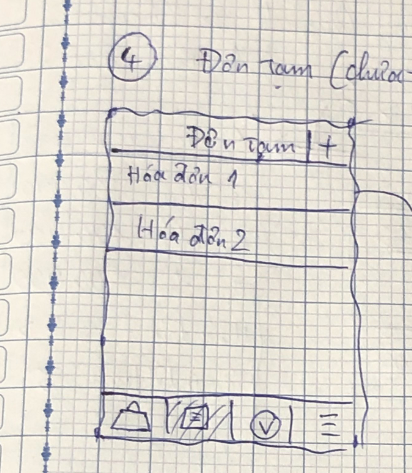 4 Đơn tạm (chưa
Đơn tạm +
Hóa đơn 1
Hóa đơn 2